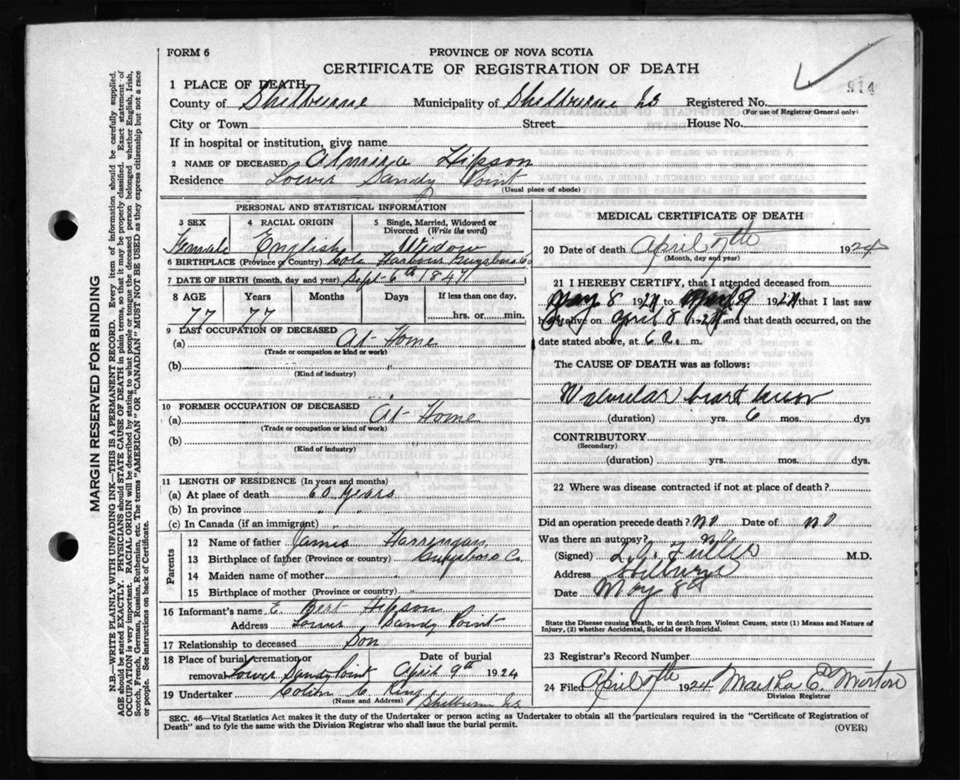 FORM 6
PROVINCE OF NOVA SCOTIA
CERTIFICATE OF REGISTRATION OF DEATH
914
1 PLACE OF DEATH
County of Shelburne Municipality of Shelburne NS Registered No.
(For use of Registrar General only)
City or Town Street House No.
If in hospital or institution, give name
2 NAME OF DECEASED Almira Hipson
Residence Lower Sandy Point
(Usual place of abode)
PERSONAL AND STATISTICAL INFORMATION
3 SEX 4 RACIAL ORIGIN 5 Single, Married, Widowed or Divorced (Write the word)
Female English Widow
6 BIRTHPLACE (Province or Country) Cole Harbour Guysboro Co
7 DATE OF BIRTH (month, day and year) Sept 6th 1847
8 AGE Years Months Days If less than one day.
77 77 hrs. or min.
9 LAST OCCUPATION OF DECEASED
(a) At Home
(Trade or occupation or kind or work)
(b)
(Kind of industry)
10 FORMER OCCUPATION OF DECEASED
(a) At Home
(Trade or occupation or kind or work)
(b)
(Kind of industry)
11 LENGTH OF RESIDENCE (In years and months)
(a) At place of death 60 Years
(b) In province " "
(c) In Canada (if an immigrant) " "
Parents
12 Name of father James
13 Birthplace of father (Province or country) Guysboro Co.
14 Maiden name of mother
15 Birthplace of mother (Province or Country)
16 Informant's name E. Bert Hipson
Address Lower Sandy Point
17 Relationship to deceased Son
18 Place of burial, cremation or removal Lower Sandy Point Date of burial April 9th 1924
19 Undertaker Colin C. King
(Name and Address) Shelburne NS
MEDICAL CERTIFICATE OF DEATH
20 Date of death April 7th 1924
(Month, day and year)
21 I HEREBY CERTIFY, that I attended deceased from
May 8 1924 to May 9 1924 that I last saw
h alive on April 8 1924 and that death occurred, on the
date stated above, at 6 a. m.
The CAUSE OF DEATH was as follows:
Valvular heart
(duration) yrs. 6 mos. dys
CONTRIBUTORY
(Secondary)
(duration) yrs. mos. dys.
22 Where was disease contracted if not at place of death?
Did an operation precede death? NO Date of NO
Was there an autopsy? No
(Signed) L. O. Fuller M.D.
Address Shelburne
Date May 8th
State the Disease causing Death, or in death from Violent Causes, state (1) Means and Nature of Injury, (2) whether Accidental, Suicidal or Homicidal.
23 Registrar's Record Number
24 Filed April 7th 1924 Martha E. Morton
Division Registrar
SEC. 46—Vital Statistics Act makes it the duty of the Undertaker or person acting as Undertaker to obtain all the particulars required in the "Certificate of Registration of
Death" and to fyle the same with the Division Registrar who shall issue the burial permit.
(OVER)
MARGIN RESERVED FOR BINDING
N.B.—WRITE PLAINLY WITH UNFADING INK—THIS IS A PERMANENT RECORD. Every item of information should be carefully supplied.
AGE should be stated EXACTLY. PHYSICIANS should STATE CAUSE OF DEATH in plain terms, so that it may be properly classified. Exact statement of
OCCUPATION is very important. RACIAL ORIGIN will be described by stating to what people or tongue the deceased person belonged whether English, Irish,
Scotch, French, German, Russian, Ruthenian, etc. The terms "AMERICAN" OR "CANADIAN" MUST NOT BE USED as they express citizenship but not a race
or people. See instructions on back of Certificate.